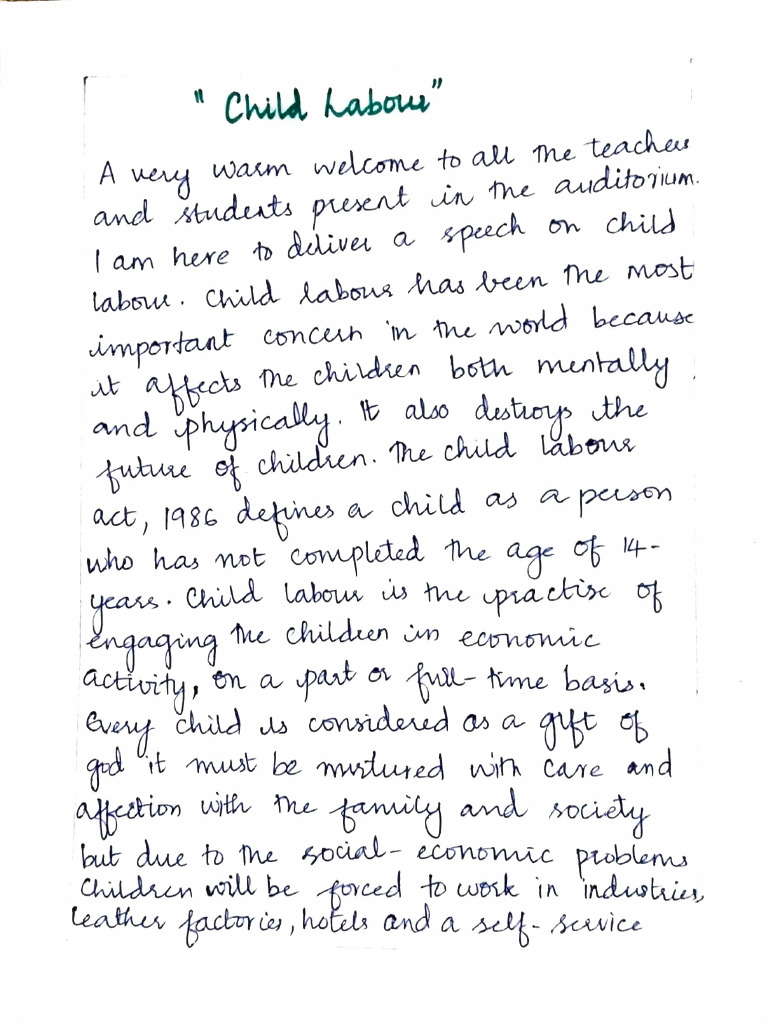 "Child Labour"
A very warm welcome to all the teachers
and students present in the auditorium.
I am here to deliver a speech on child
labour. Child labour has been the most
important concern in the world because
it affects the children both mentally
and physically. It also destroys the
future of children. The child labour
act, 1986 defines a child as a person
who has not completed the age of 14-
years. Child labour is the practise of
engaging the children in economic
activity, on a part or full-time basis.
Every child is considered as a gift of
god it must be nurtured with care and
affection with the family and society
but due to the social-economic problems
children will be forced to work in industries,
leather factories, hotels and a self-service